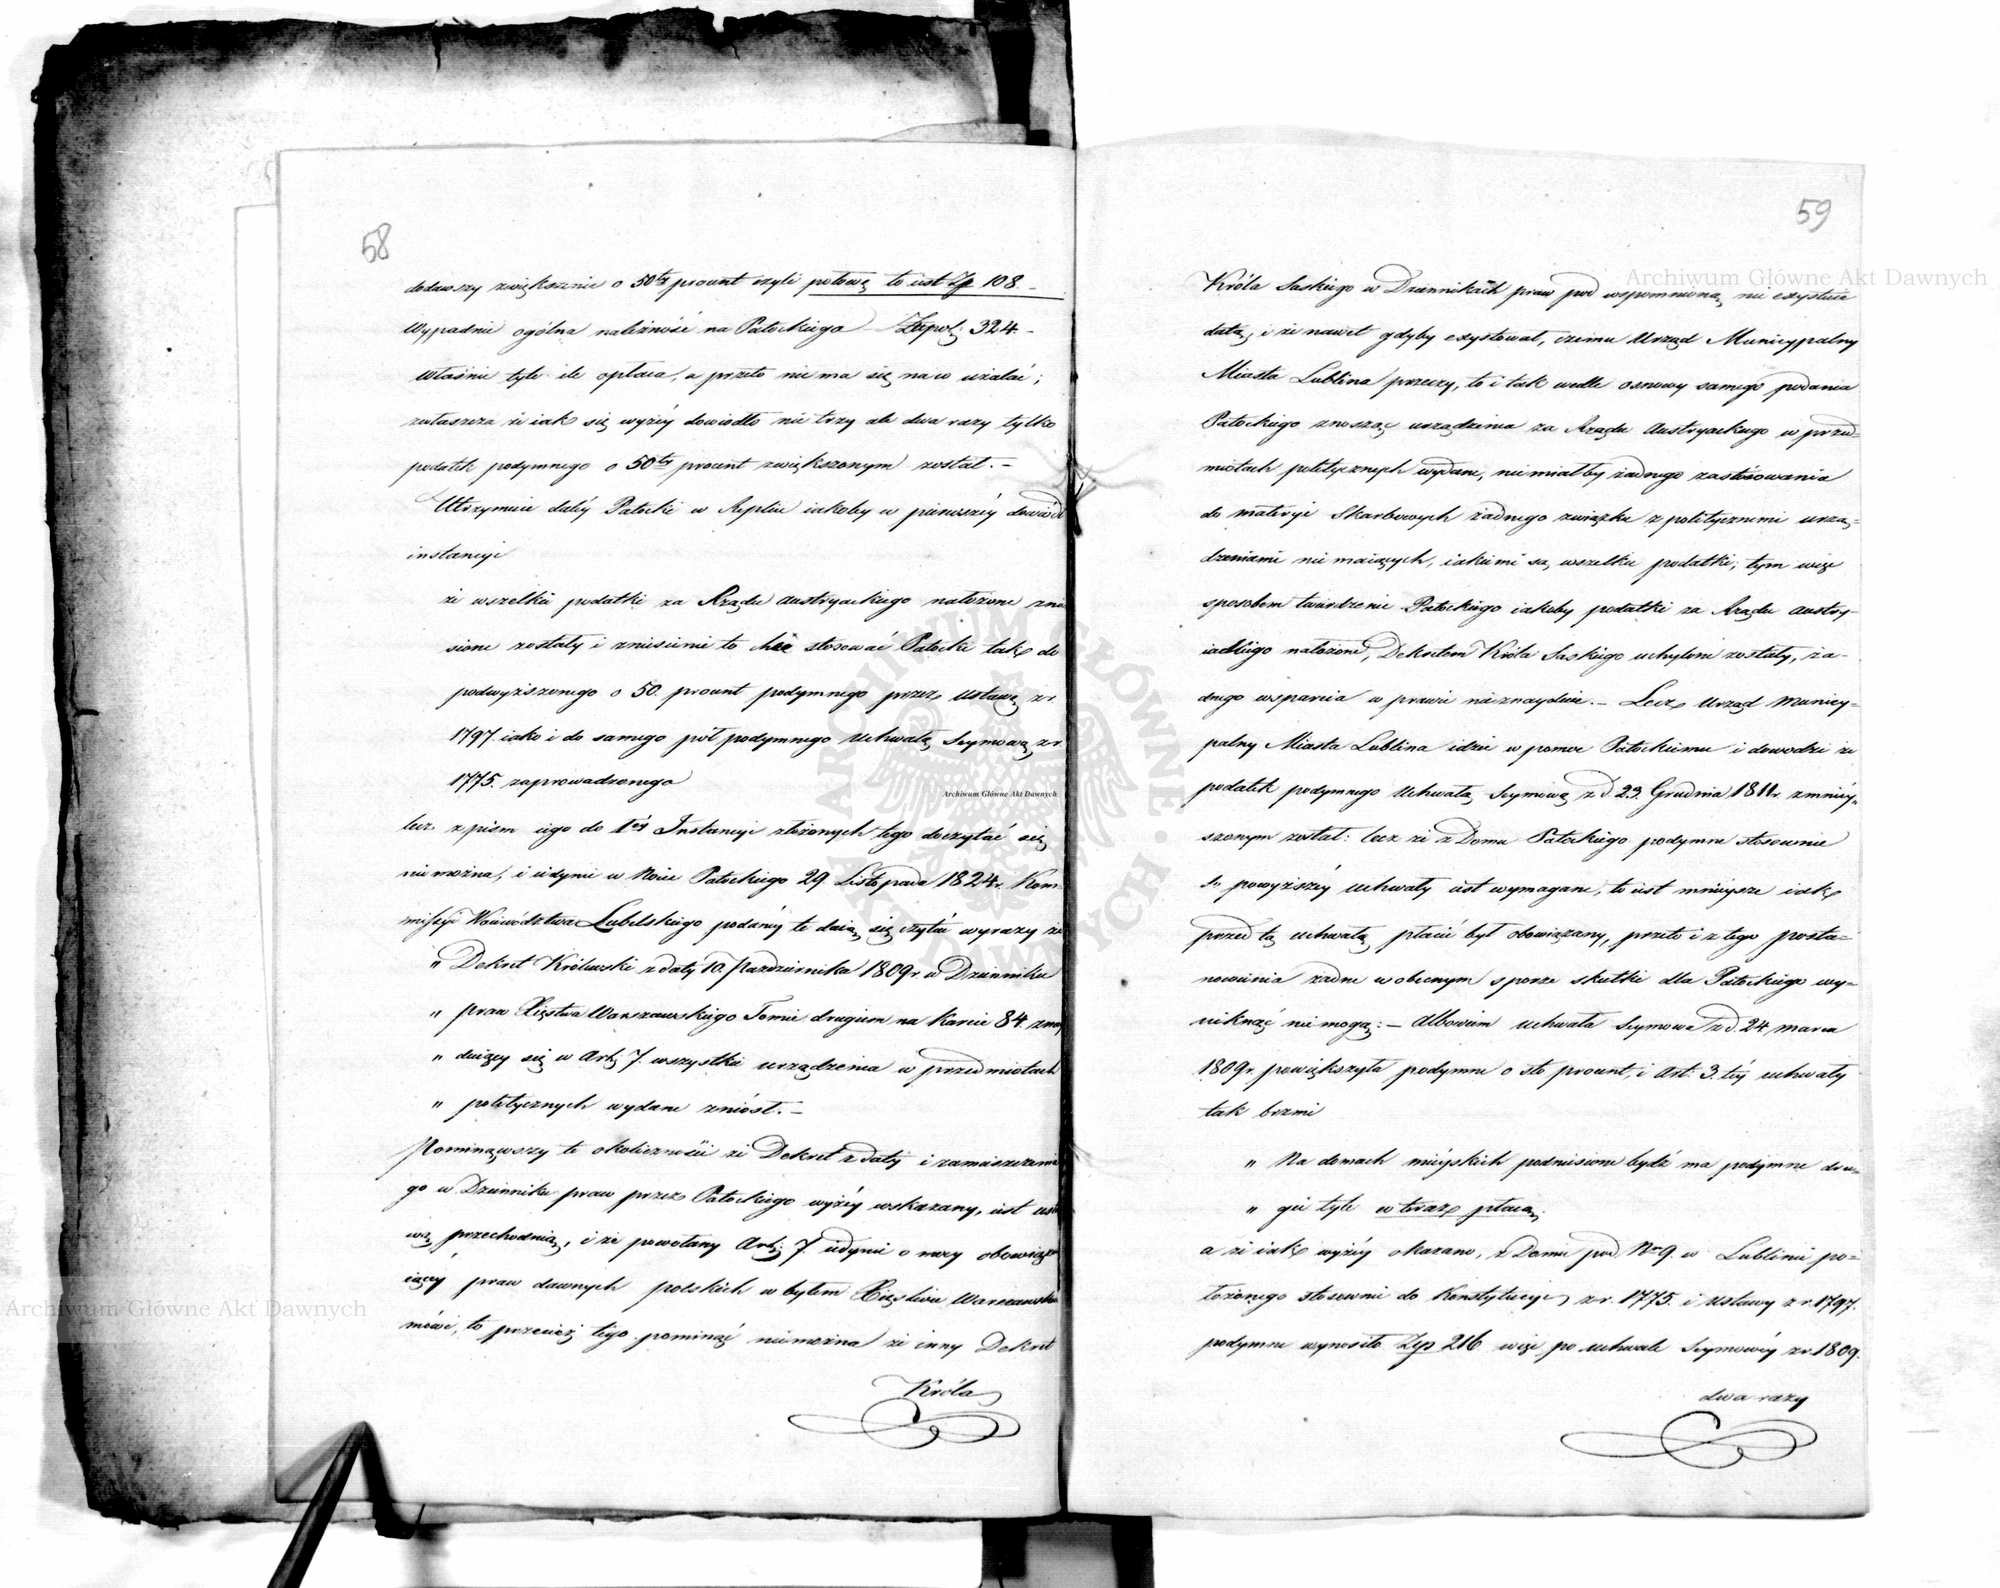 58
dodawszy zwiększenie o 50ty procent czyli połowę to iest Zp 108 –
Wypadnie ogólna należność na Patockiego Złpol: 324 –
właśnie tyle ile opłaca, a przeto nie ma się na co użalać;
zwłaszcza że iak się wyżéy dowiodło nie trzy ale dwa razy tylko
podatek podymnego o 50ty procent zwiększonym został. –
Utrzymuie daléy Patocki w Replice iakoby w pierwszéy dowiódł
instancyi
że wszelkie podatki za Rządu austryackiego nałożone znie
sione zostały i zniesienie to chce stosować Patocki tak do
podwyższonego o 50. procent podymnego przez ustawę z r.
1797. iako i do samego pół podymnego Uchwałą Seymową z r.
1775. zaprowadzonego
lecz z pism iego do 1éy Instancyi złożonych tego doczytać się
nie można, i iedynie w Nocie Patockiego 29 Listopada 1824 r. Kom
missyi Woiewództwa Lubelskiego podanéy te daią się czytać wyrazy że
" Dekret Królewski z daty 10. Października 1809 r. w Dzienniku
" praw Xięstwa Warszawskiego Tomie drugim na karcie 84 znay
" duiący się w Art: 7. wszystkie urządzenia w przedmiotach
" politycznych wydane zniósł. –
Pominąwszy te okoliczności że Dekret z daty i zamieszczenia
go w Dzienniku praw przez Patockiego wyżéy wskazany, iest usta
wą przechodnią, i że powołany Art: 7 iedynie o mocy obowiązu
iącéy praw dawnych polskich w byłem Xięstwie Warszawskim
mówi, to przecież tego pominąć nie można że inny Dekret
Króla
59
Króla Saskiego w Dziennikach praw pod wspomnioną nie exystuie
datą, i że nawet gdyby exystował, czemu Urząd Municypalny
Miasta Lublina przeczy, to i tak wedle osnowy samego podania
Patockiego znosząc urządzenia za Rządu Austryackiego w przed-
miotach politycznych wydane, nie miałby żadnego zastosowania
do materyi Skarbowych żadnego związku z politycznemi urzą-
dzeniami nie maiących, iakiemi są wszelkie podatki; tym więc
sposobem twierdzenie Patockiego iakoby podatki za Rządu austry-
iackiego nałożone, Dekretem Króla Saskiego uchylone zostały, ża-
dnego wsparcia w prawie nie znayduie. – Lecz Urząd Municy-
palny Miasta Lublina idzie w pomoc Patockiemu i dowodzi że
podatek podymnego Uchwałą Seymową z d. 23. Grudnia 1811 r. zmniéy-
szonym został: lecz że z Domu Patockiego podymne stosownie
do powyższéy uchwały iest wymagane, to iest mnieysze iak
przed tą uchwałą płacić był obowiązany, przeto i z tego posta-
nowienia żadne w obecnym sporze skutki dla Patockiego wy-
niknąć nie mogą: – Albowiem uchwała Seymowa z d. 24 marca
1809 r. powiększyła podymne o sto procent, i Art. 3. téy uchwały
tak brzmi
" Na domach mieyskich podniesione bydź ma podymne dru-
" gie tyle w teraz płacą.
a że iak wyżéy okazano, z Domu pod Nro 9. w Lublinie po-
łożonego stosownie do Konstytucyi z r. 1775. i Ustawy z r. 1797.
podymne wynosiło Złp 216 więc po uchwale Seymowéy z r. 1809.
dwa razy
Archiwum Główne Akt Dawnych
Archiwum Główne Akt Dawnych
Archiwum Główne Akt Dawnych
ARCHIWUM GŁÓWNE AKT DAWNYCH